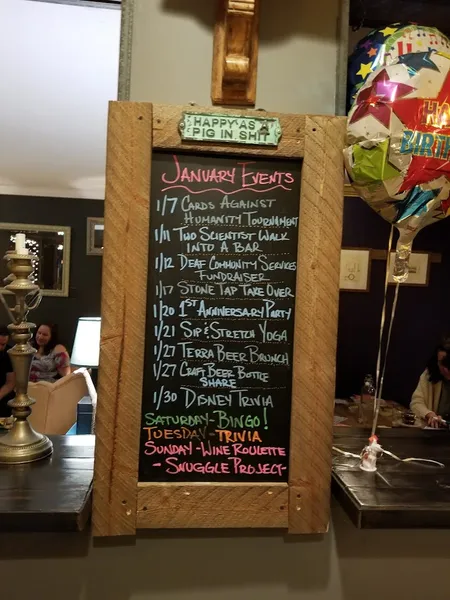 HAPPY AS A
PIG IN SHIT
JANUARY EVENTS
1/7 CARDS AGAINST
HUMANITY TOURNAMENT
1/11 TWO SCIENTIST WALK
INTO A BAR
1/12 DEAF COMMUNITY SERVICES
FUNDRAISER
1/17 STONE TAP TAKE OVER
1/20 1ST ANNIVERSARY PARTY
1/21 SIP & STRETCH YOGA
1/27 TERRA BEER BRUNCH
1/27 CRAFT BEER BOTTLE
SHARE
1/30 DISNEY TRIVIA
SATURDAY-BINGO!
TUESDAY-TRIVIA
SUNDAY-WINE ROULETTE
- SNUGGLE PROJECT-
HA
BIRTH